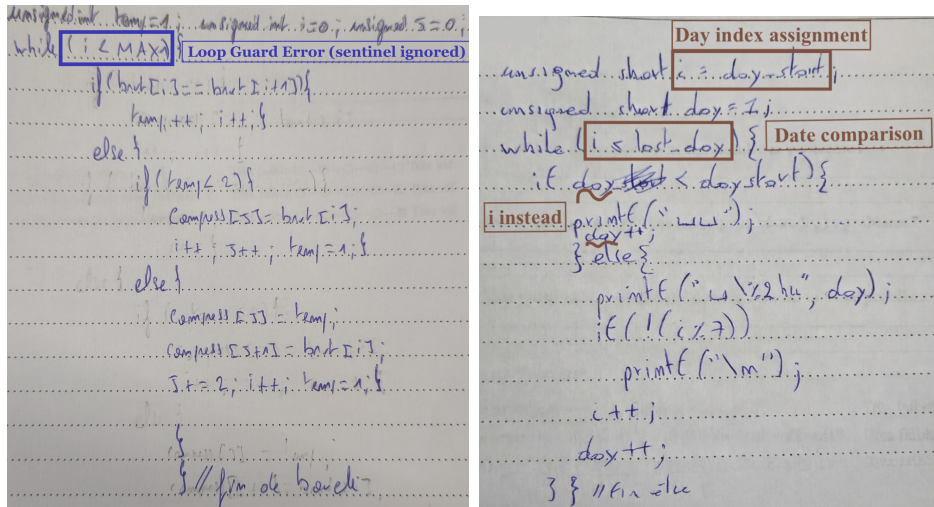 unsigned int temp=1; unsigned int i=0; unsigned J=0;
while (i < MAX1) {
Loop Guard Error (sentinel ignored)
if(brut[i]==brut[i+1]){
temp++; i++; }
else {
if(temp<2){
compress[J]=brut[i];
i++; J++; temp=1; }
else {
compress[J]=temp;
compress[J+1]=brut[i];
J+=2; i++; temp=1; }
}
} // fin de boucle
Day index assignment
unsigned short i = day_start;
unsigned short day = 1;
while (i ≤ last_day) {
Date comparison
if day < daystart){
i instead
printf("␣␣");
day++;
} else {
printf("␣\%2hu", day);
if(!(i%7))
printf("\n");
i++;
day++;
} } // Fin else